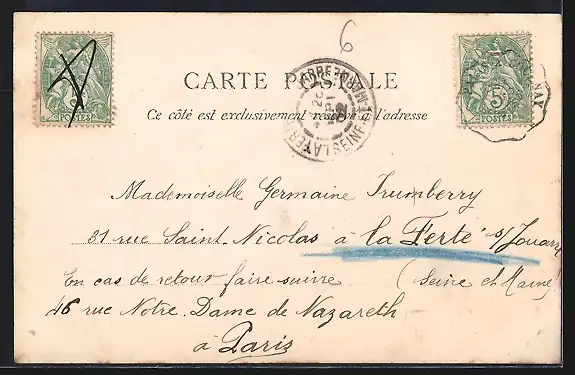 6
CARTE POSTALE
Ce côté est exclusivement réservé à l'adresse
5
POSTES
Mademoiselle Germaine Trumberry
31 rue Saint-Nicolas à la Ferté s/Jouarre
En cas de retour faire suivre (Seine et Marne)
46 rue Notre-Dame de Nazareth
à Paris